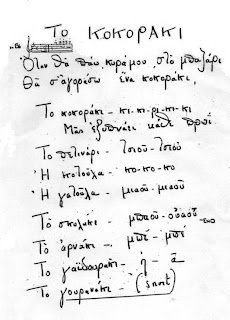 Το ΚΟΚΟΡΑΚΙ
Όταν θα πάω κυρά μου, στο παζάρι
Θα σ' αγοράσω ένα κοκοράκι,
Το κοκοράκι - κι-κι-ρι-κι-κι
Μας ξυπνάει κάθε πρωΐ.
Το πετινάρι - τσιου-τσιου
Η κοτούλα - κο-κο-κο
Η γατούλα - μιαου-μιαου
Το σκυλάκι - μπαου-ουαου
Το αρνάκι - μπέ-μπέ
Το γαϊδουράκι - η - α
Το γουρανάκι - (snort)